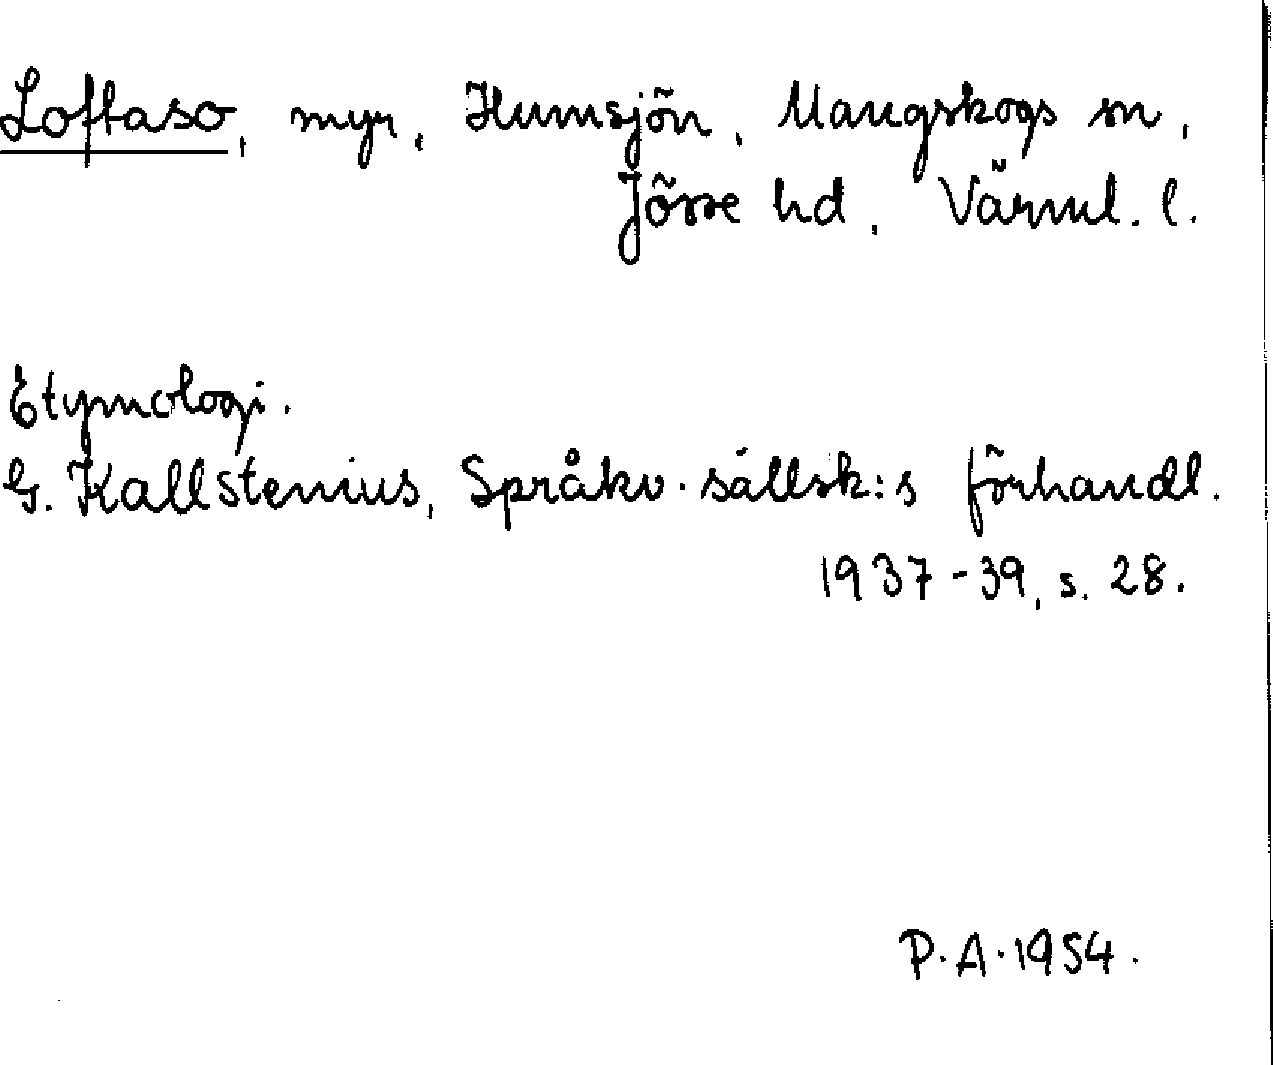 Loftaso, myr, Humsjön, Mangskogs sn,
Jösse hd, Värml. l.
Etymologi.
G. Kallstenius, Språkv. sällsk:s förhandl.
1937-39, s. 28.
P.A. 1954.